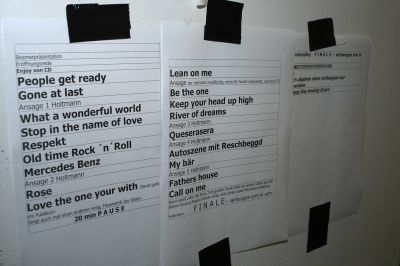 Beamerpräsentation
Eröffnungsrede
Enjoy von CD
People get ready
Gone at last
Ansage 1 Holtmann
What a wonderful world
Stop in the name of love
Respekt
Old time Rock ´n´Roll
Mercedes Benz
Ansage 2 Holtmann
Rose
Love the one your with David geht
ins Publikum
20 min P A U S E
Lean on me
Ansage
Be the one
Keep your head up high
River of dreams
Ansage 3 Holtmann
Queserasera
Ansage 4 Holtmann
Autoszene mit Reschbeggd
My bär
Ansage 5 Holtmann
Fathers house
Call on me
F I N A L E - verbeugen
F I N A L E - verbeugen